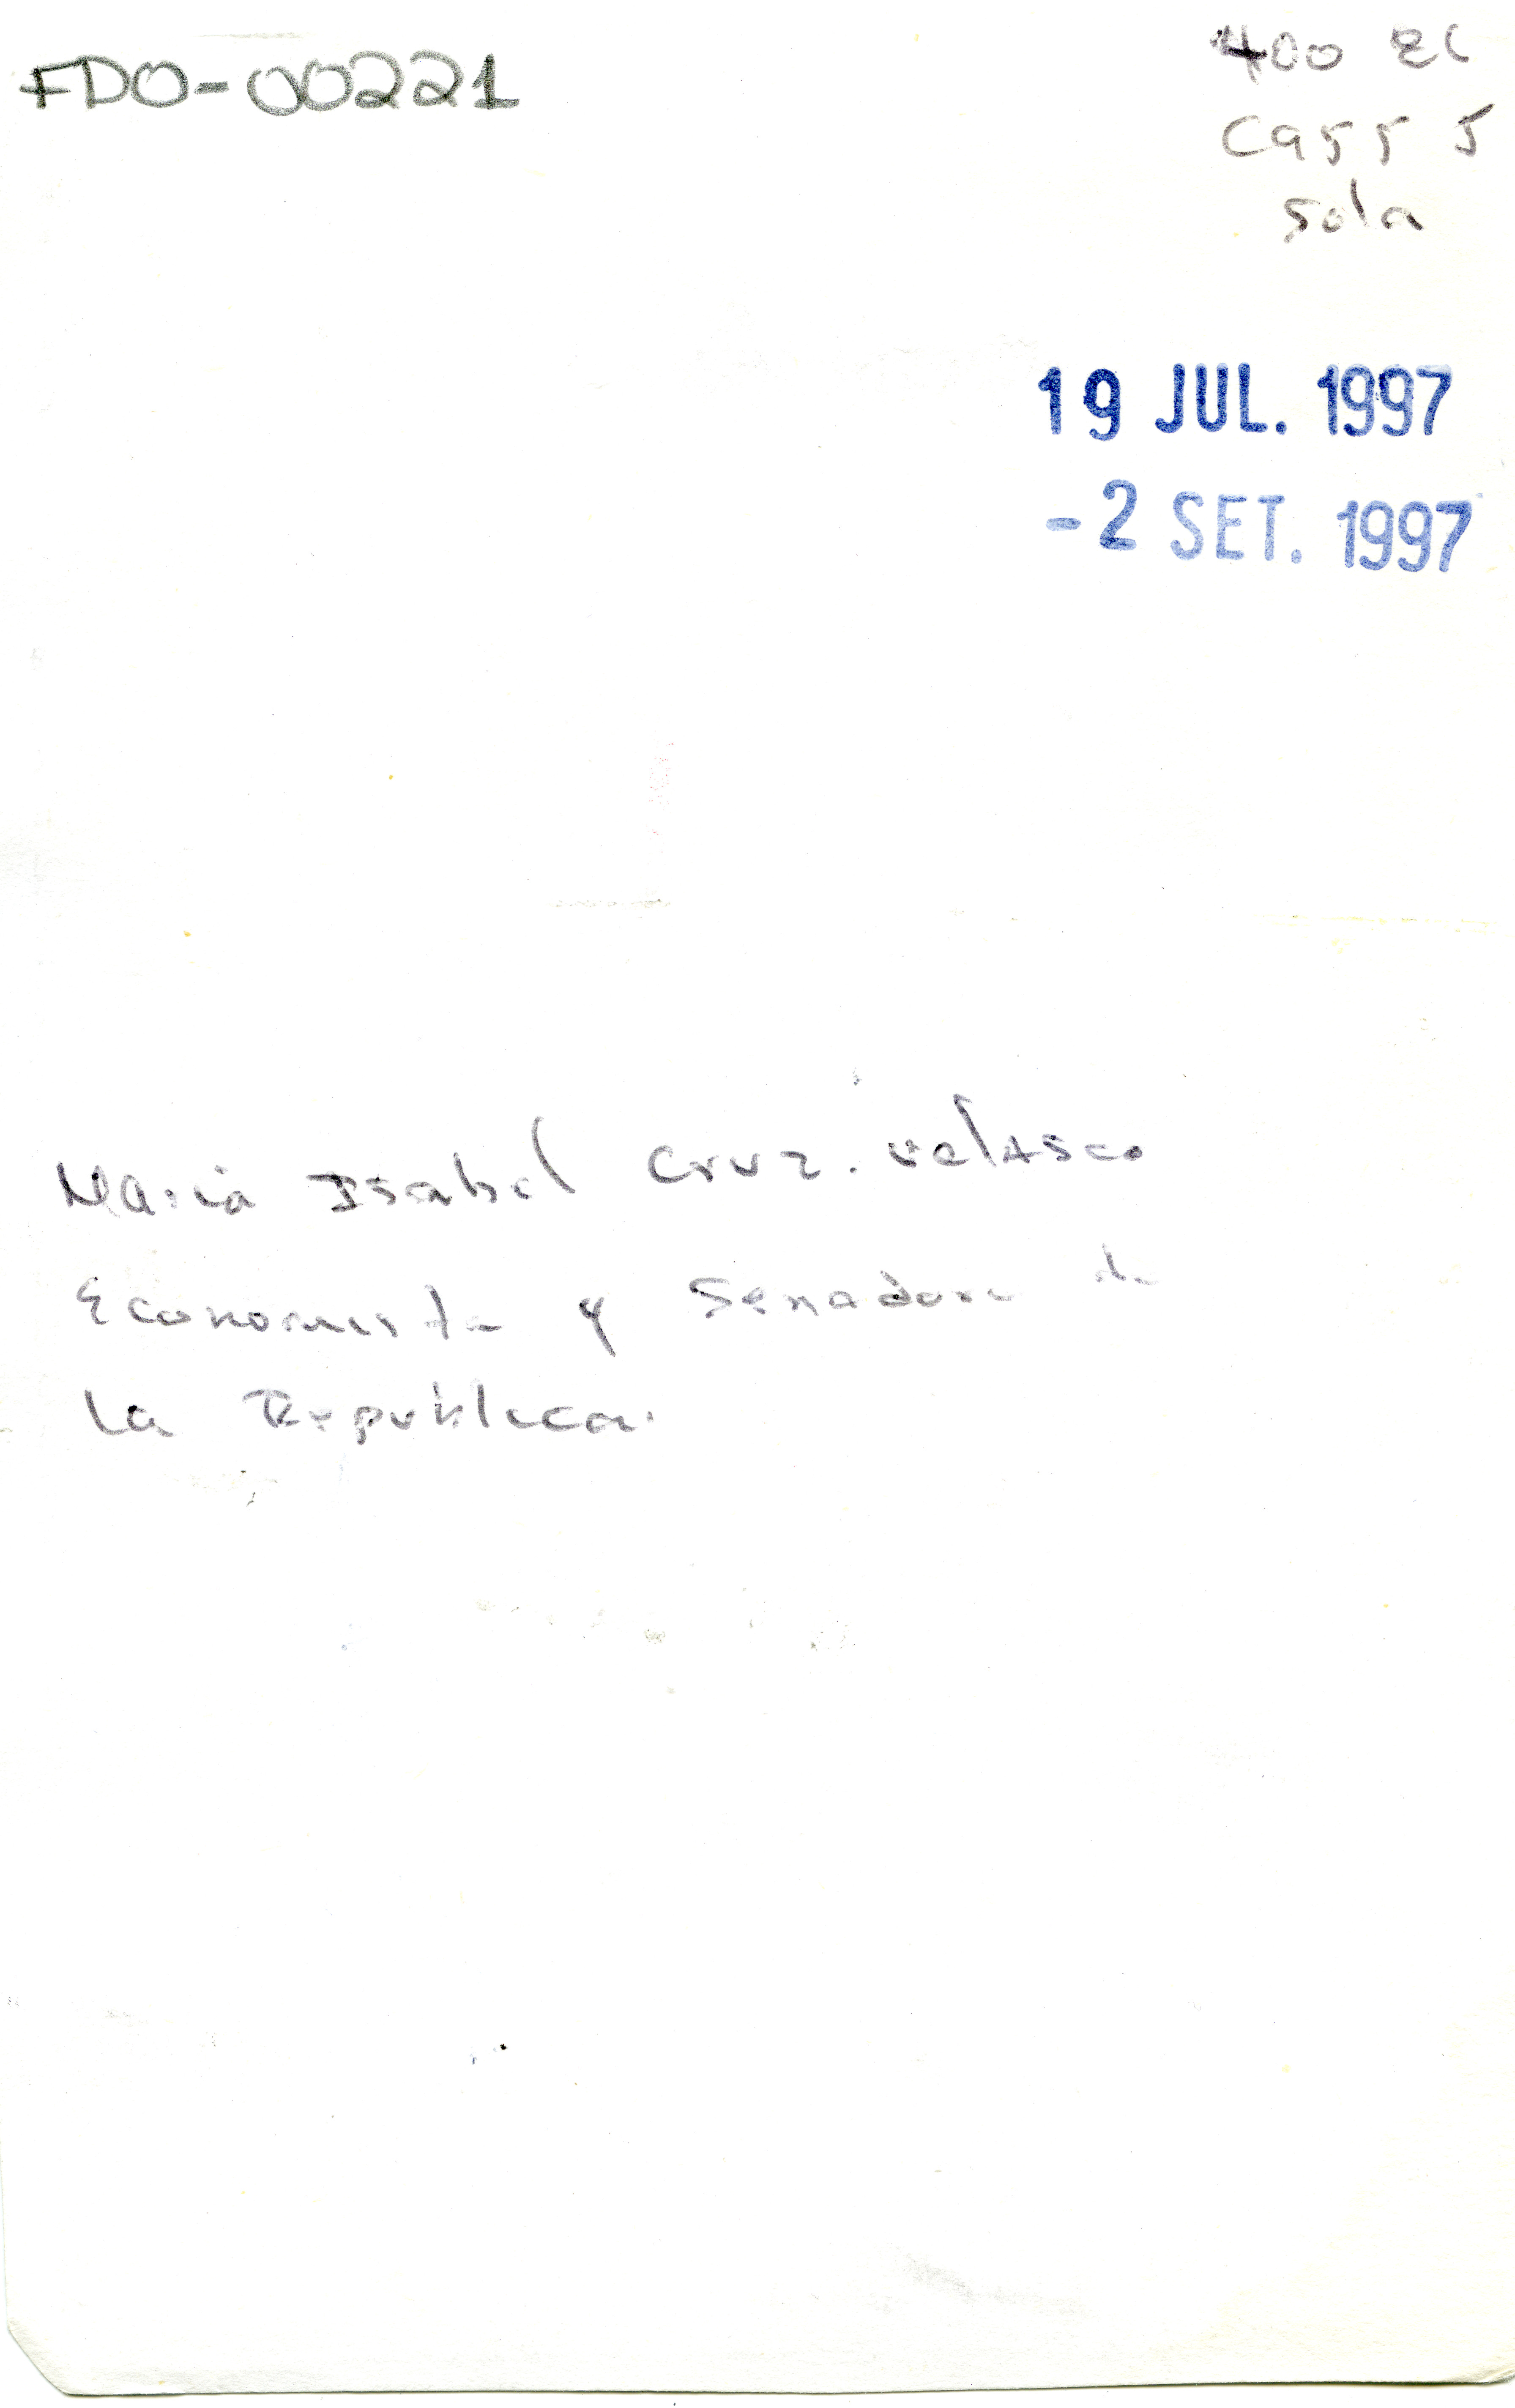 FDO-00221
400 EC
Ca55 5
sola
19 JUL. 1997
-2 SET. 1997
Maria Isabel Cruz. Velasco
Economista y Senadora de
la Republica.